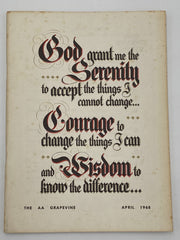 God grant me the
Serenity
to accept the things I
cannot change...
Courage to
change the things I can
and Wisdom to
know the difference...
THE AA GRAPEVINE
APRIL 1968